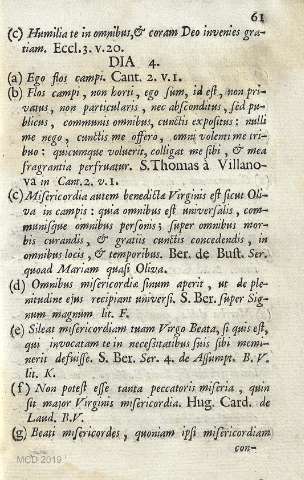 61
(c) Humilia te in omnibus, & coram Deo invenies gra-
tiam. Eccl. 3. v. 20.
DIA 4.
(a) Ego flos campi. Cant. 2. v. 1.
(b) Flos campi, non horti, ego sum, id est, non pri-
vatus, non particularis, nec absconditus, sed pu-
blicus, communis omnibus, cunctis expositus: nulli
me nego, cunctis me offero, omni volenti me tri-
buo: quicumque voluerit, colligat me sibi, & mea
fragrantia perfruatur. S. Thomas à Villano-
va in Cant. 2. v. 1.
(c) Misericordia autem benedictæ Virginis est sicut Oli-
va in campis: quia omnibus est universalis, com-
munisque omnibus personis; super omnibus mor-
bis curandis, & gratiis cunctis concedendis, in
omnibus locis, & temporibus. Ber. de Bust. Ser.
quoad Mariam quasi Oliva.
(d) Omnibus misericordiæ sinum aperit, ut de ple-
nitudine ejus recipiant universi. S. Ber. super Sig-
num magnum lit. F.
(e) Sileat misericordiam tuam Virgo Beata, si quis est,
qui invocatam te in necessitatibus suis sibi memi-
nerit defuisse. S. Ber. Ser. 4. de Assumpt. B. V.
lit. K.
(f) Non potest esse tanta peccatoris miseria, quin
sit major Virginis misericordia. Hug. Card. de
Laud. B. V.
(g) Beati misericordes, quoniam ipsi misericordiam
con-
MCD 2019